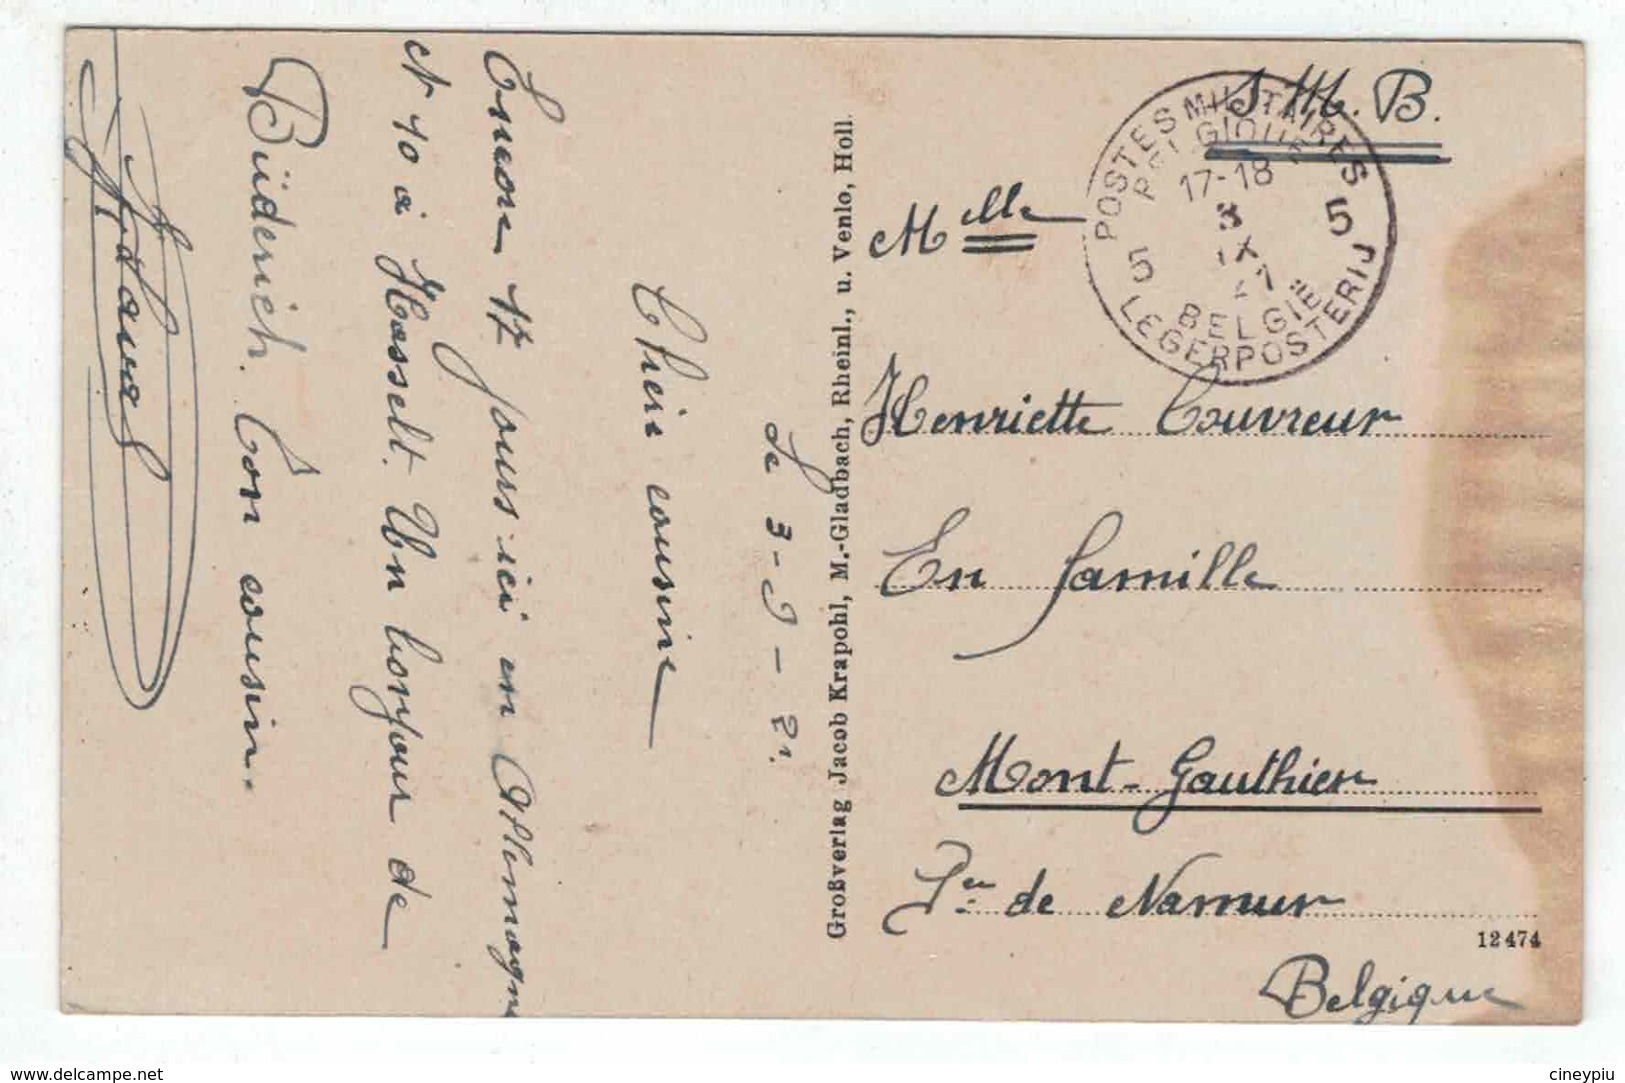 S.M.B.
POSTES MILITAIRES
BELGIQUE
17-18
3
IX
21
5 5
BELGIË
LEGERPOSTERIJ
Melle
Henriette Couvreur
En famille
Mont-Gauthier
Pce de Namur
Belgique
12474
Großverlag Jacob Krapohl, M.-Gladbach, Rheinl., u. Venlo, Holl.
Le 3-9-21.
Chère cousine
Encore 17 jours ici en Allemagne
et 40 à Hasselt. Un bonjour de
Büderich. Ton cousin.
www.delcampe.net
cineypiu